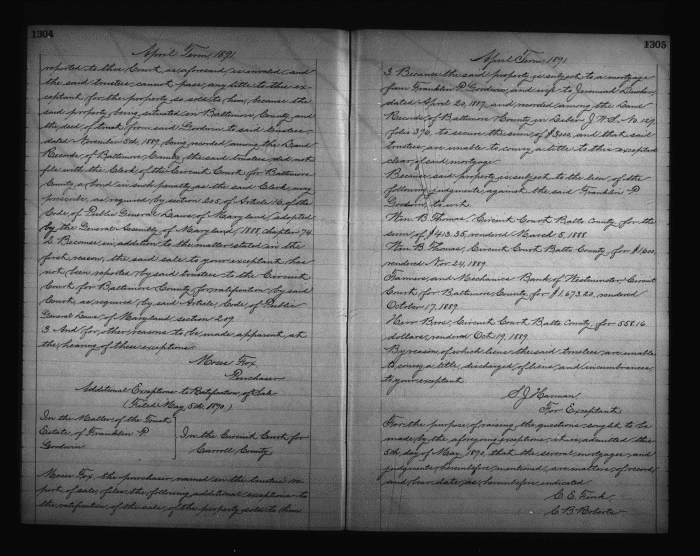 1304
April Term, 1891.
reported to this Court as aforesaid is invalid, and
the said trustees cannot pass any title to this ex-
ceptant for the property so sold to him, because the
said property being situated in Baltimore County and
the deed of trust from said Goodwin to said trustees
dated November 5th, 1889, being recorded among the Land
Records of Baltimore County, the said trustees did not
file with the Clerk of the Circuit Court for Baltimore
County a bond in such penalty as the said Clerk may
prescribe, as required by section 205 of Article 16 of the
Code of Public General Laws of Maryland, adopted
by the General Assembly of Maryland, 1888, chapter 74.
2. Because in addition to the matter stated in the
first reason, the said sale to your exceptant has
not been reported by said trustees to the Circuit
Court for Baltimore County for ratification by said
Court, as required by said Article, Code of Public
General Laws of Maryland, section 209.
3. And for other reasons to be made apparent at
the hearing of these exceptions.
Moses Fox
Purchaser
Additional Exceptions to Ratification of Sale
(Filed May 5th, 1890.)
In the Matter of the Trust
Estate of Franklin P
Goodwin
In the Circuit Court for
Carroll County
Moses Fox, the purchaser named in the trustees re-
port of sales, files the following additional exceptions to
the ratification of the sale of the property sold to him
1305
April Term, 1891.
3. Because the said property is subject to a mortgage
from Franklin P. Goodwin and wife to Jeremiah
dated April 20, 1887 and recorded among the Land
Records of Baltimore County in Liber J.W.S. No.
folio 376, to secure the sum of $3000, and that said
trustees are unable to convey a title to this exceptant
clear of said mortgage.
Because said property is subject to the lien of the
following judgments against the said Franklin P
Goodwin, to wit:
Wm. B. Thomas, Circuit Court Balto County for the
sum of $413.35, rendered March 5, 1888.
Wm. B. Thomas, Circuit Court Balto County, for $1600,
rendered Nov 24, 1889.
Farmers and Mechanics Bank of Westminster, Circuit
Court for Baltimore County, for $1,673.20, rendered
October 17, 1889.
Herr Bros., Circuit Court Balto County, for 558.16
dollars, rendered Oct 19, 1889.
By reason of which liens the said trustees are unable
to convey a title, discharged of liens and incumbrances
to your exceptant.
S.J. Harman
For Exceptant
For the purpose of raising the questions sought to be
made by the aforegoing exceptions, it is admitted this
5th day of May, 1890, that the several mortgages and
judgments hereinbefore mentioned are matters of record
and bear date as hereinbefore indicated.
C. E. Fink
C B Roberts